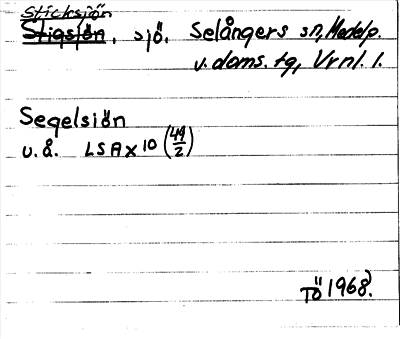 Sticksjön
Stigsjön, sjö. Selångers sn, Medelp.
v. doms. tg, Vrnl. 1.
Segelsiön
u. å. LSA X 10 (49/2)
TÖ 1968.